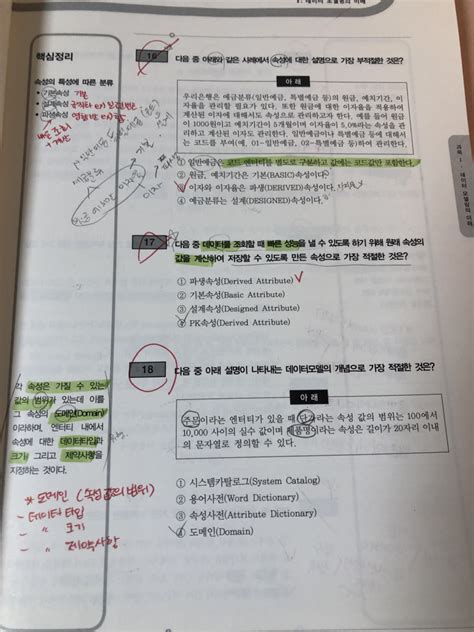 Ⅰ. 데이터 모델링의 이해
핵심정리
속성의 특성에 따른 분류
• 기본속성 기본
• 설계속성
• 파생속성
16
다음 중 아래와 같은 사례에서 속성에 대한 설명으로 가장 부적절한 것은?
아 래
우리은행은 예금분류(일반예금, 특별예금 등)의 원금, 예치기간, 이
자율을 관리할 필요가 있다. 또한 원금에 대한 이자율을 적용하여
계산된 이자에 대해서도 속성으로 관리하고자 한다. 예를 들어 원금
이 1000원이고 예치기간이 5개월이며 이자율이 5.0%라는 속성을 관
리하고 계산된 이자도 관리한다. 일반예금이나 특별예금 등에 대해서는
코드를 부여(예, 01-일반예금, 02-특별예금 등)하여 관리한다.
① 일반예금은 코드 엔터티를 별도로 구분하고 값에는 코드값만 포함한다.
② 원금, 예치기간은 기본(BASIC)속성이다.
③ 이자와 이자율은 파생(DERIVED)속성이다.
④ 예금분류는 설계(DESIGNED)속성이다.
이자
17
다음 중 데이터를 조회할 때 빠른 성능을 낼 수 있도록 하기 위해 원래 속성의
값을 계산하여 저장할 수 있도록 만든 속성으로 가장 적절한 것은?
① 파생속성(Derived Attribute)
② 기본속성(Basic Attribute)
③ 설계속성(Designed Attribute)
④ PK속성(Derived Attribute)
18
다음 중 아래 설명이 나타내는 데이터모델의 개념으로 가장 적절한 것은?
각 속성은 가질 수 있는
값의 범위가 있는데 이를
그 속성의 도메인(Domain)
이라하며, 엔터티 내에서
속성에 대한 데이터타입과
크기 그리고 제약사항을
지정하는 것이다.
아 래
주문이라는 엔터티가 있을 때 단가라는 속성 값의 범위는 100에서
10,000 사이의 실수 값이며 제품명이라는 속성은 길이가 20자리 이내
의 문자열로 정의할 수 있다.
① 시스템카탈로그(System Catalog)
② 용어사전(Word Dictionary)
③ 속성사전(Attribute Dictionary)
④ 도메인(Domain)
* 도메인 (속성값의 범위)
- 데이터 타입
- 〃 크기
- 〃 제약사항
과목 Ⅰ. 데이터 모델링의 이해